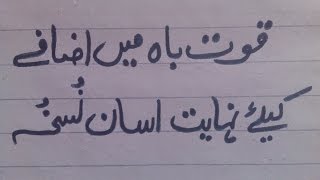 قوت باہ میں اضافے
کیلئے نہایت اسان نُسخہُ